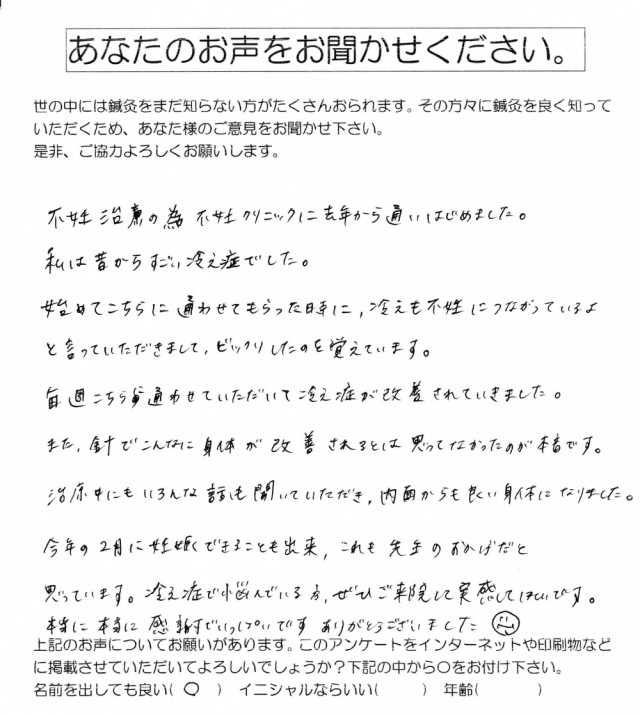 あなたのお声をお聞かせください。
世の中には鍼灸をまだ知らない方がたくさんおられます。その方々に鍼灸を良く知って
いただくため、あなた様のご意見をお聞かせ下さい。
是非、ご協力よろしくお願いします。
不妊治療の為不妊クリニックに去年から通いはじめました。
私は昔からすごい冷え症でした。
始めてこちらに通わせてもらった日時に、冷えも不妊につながっているよ
と言っていただきまして、ビックリしたのを覚えています。
毎週こちら通わせていただいて冷え症が改善されていきました。
また、針でこんなに身体が改善されるとは思ってなかったのが本音です。
治療中にもいろんな話も聞いていただき、内面からも良い身体になりました。
今年の2月に妊娠できることも出来、これも先生のおかげだと
思っています。冷え症で悩んでいる方、ぜひご来院して実感してほしいです。
本当に本当に感謝でいっぱいです ありがとうございました
上記のお声についてお願いがあります。このアンケートをインターネットや印刷物など
に掲載させていただいてよろしいでしょうか？下記の中から○をお付け下さい。
名前を出しても良い( ○ ) イニシャルならいい( ) 年齢( )